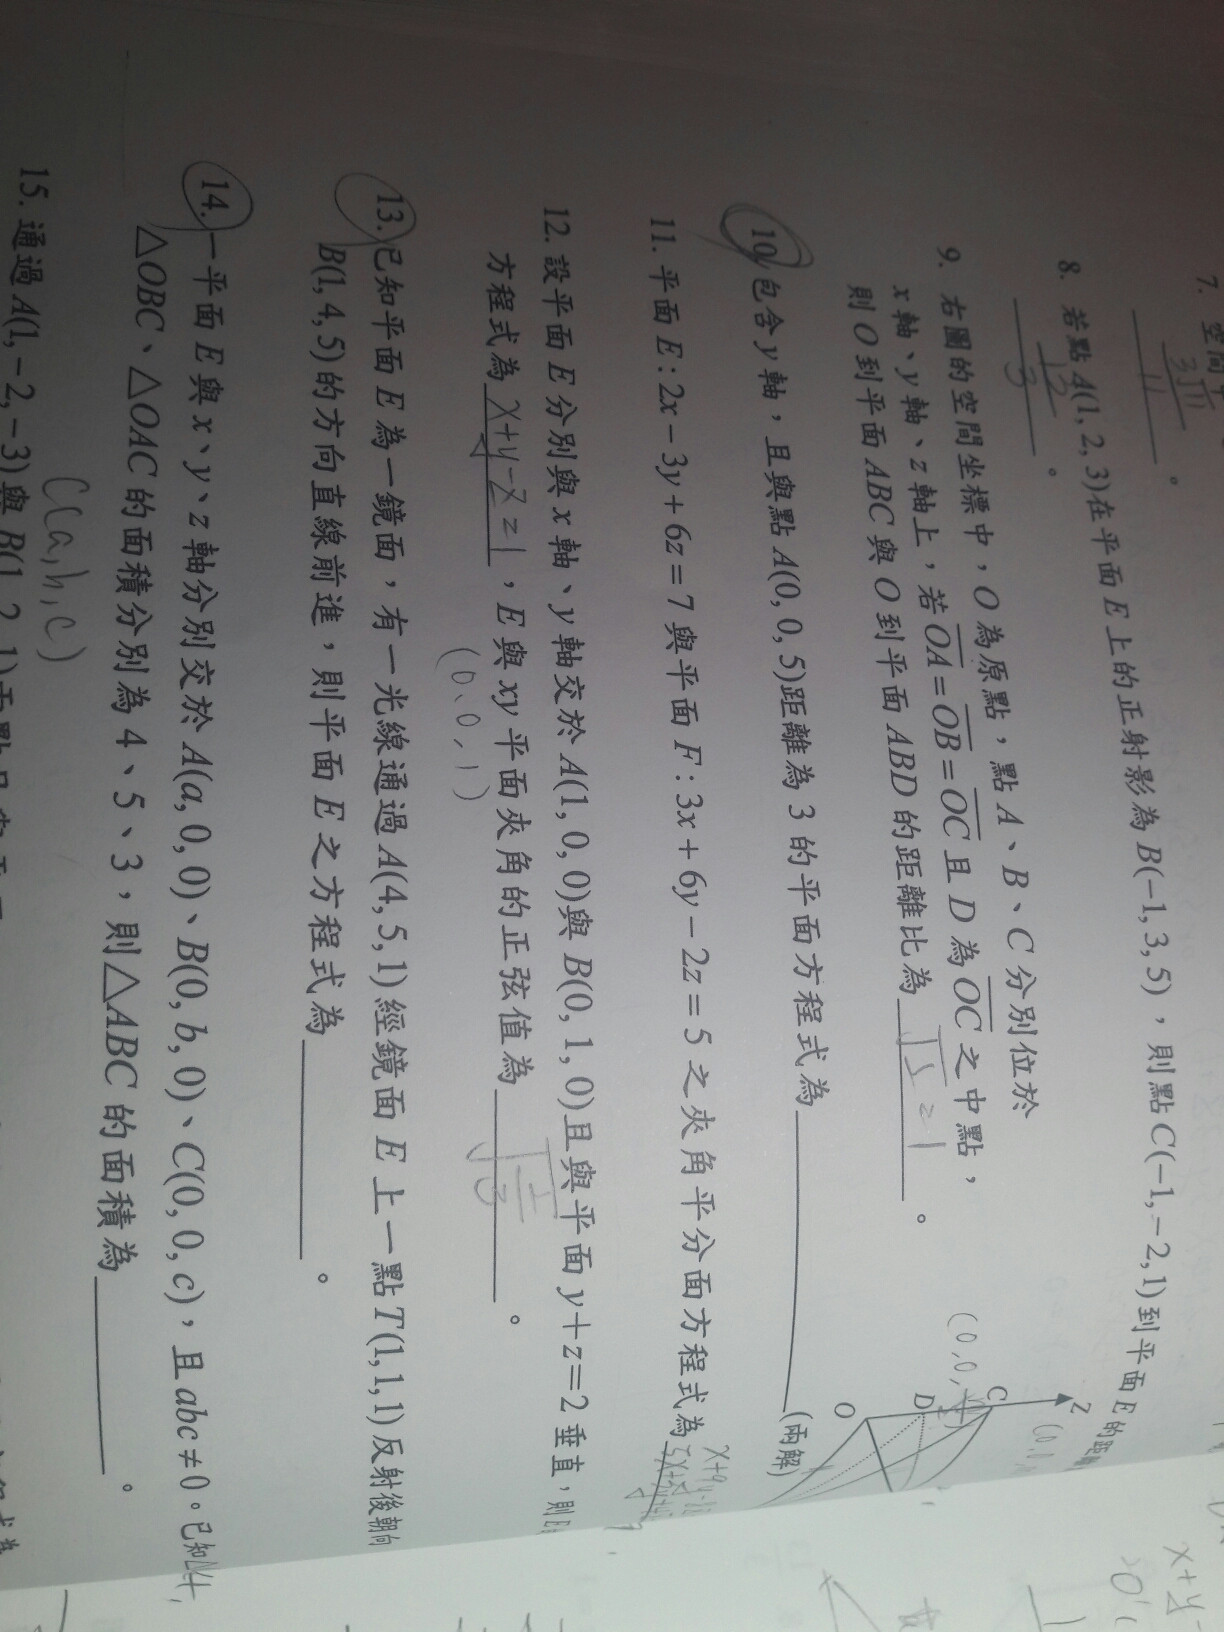 7. 空間中
3√11
11 。
8. 若點 A(1, 2, 3)在平面 E 上的正射影為 B(−1, 3, 5)，則點 C(−1, −2, 1)到平面 E 的距離
3 。
9. 右圖的空間坐標中，O 為原點，點 A、B、C 分別位於
x 軸、y 軸、z 軸上，若 OA = OB = OC 且 D 為 OC 之中點，
則 O 到平面 ABC 與 O 到平面 ABD 的距離比為 。
z
C
D
O
10. 包含 y 軸，且與點 A(0, 0, 5)距離為 3 的平面方程式為 (兩解)
11. 平面 E : 2x − 3y + 6z = 7 與平面 F : 3x + 6y − 2z = 5 之夾角平分面方程式為
12. 設平面 E 分別與 x 軸、y 軸交於 A(1, 0, 0)與 B(0, 1, 0)且與平面 y + z = 2 垂直，則
方程式為 x+y−z=1 ，E 與 xy 平面夾角的正弦值為 。
(0、0, 1)
13. 已知平面 E 為一鏡面，有一光線通過 A(4, 5, 1) 經鏡面 E 上一點 T(1, 1, 1)反射後朝向
B(1, 4, 5)的方向直線前進，則平面 E 之方程式為 。
14. 一平面 E 與 x、y、z 軸分別交於 A(a, 0, 0)、B(0, b, 0)、C(0, 0, c)，且 abc ≠ 0。已知
△OBC、△OAC 的面積分別為 4、5、3，則△ABC 的面積為 。
C(a, b, c)
15. 通過 A(1, −2, −3)與 B(1, 2, 1)兩點且